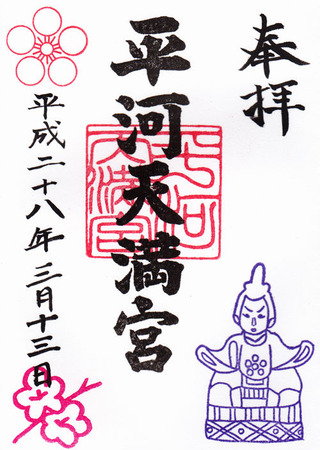 奉拝
平河天満宮
平河天満宮
平成二十八年三月十三日